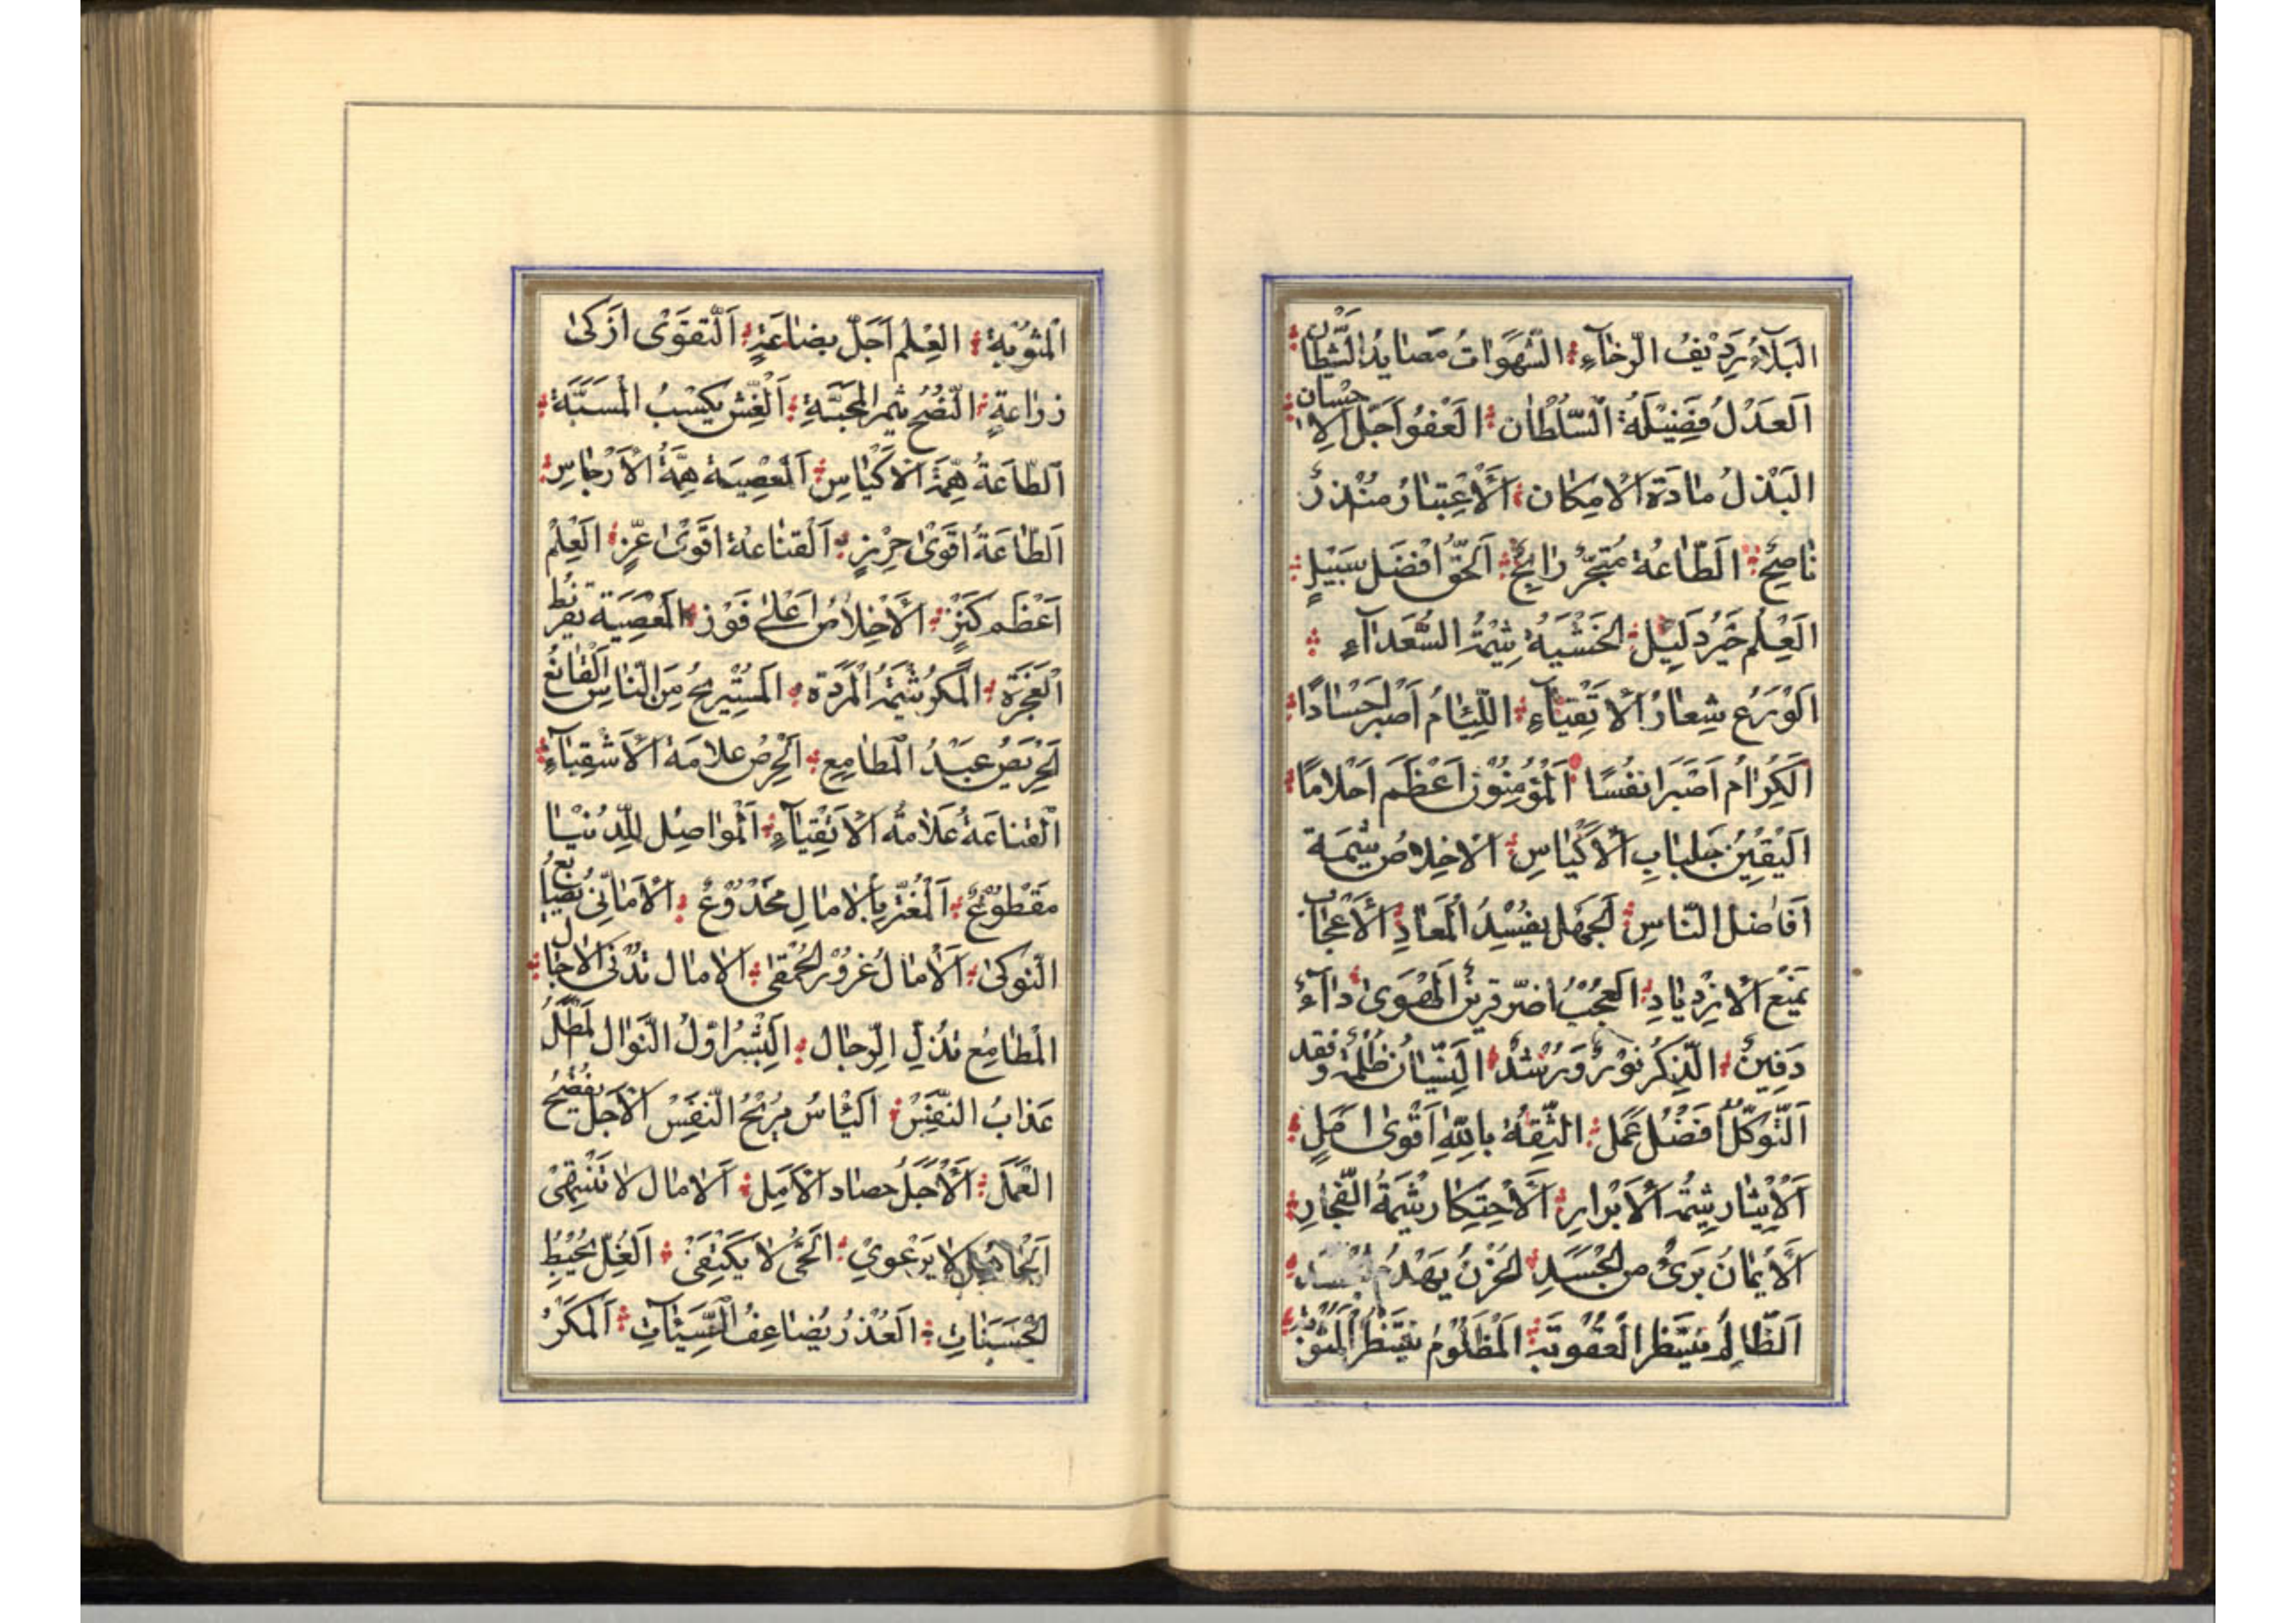 البَلَاءُ رَدِيْفُ الرَّخَآءِ الشَّهَوَاتُ مَصَايِدُ الشَّيْطَانِ
اَلعَدْلُ فَضِيْلَةُ السُّلْطَان العَفْوُ اَجَلُّ الاِحْسَان
البَذْلُ مادَة الاْمِكان اَلْاِعْتِبَارُ مُنْذِرٌ
نَاصِحٌ اَلطَّاعَةُ مُتْجَرٌ رَابِحٌ اَلحَقُّ اَفْضَل سَبِيْلٍ
اَلعِلْمُ خَيْرُ دَلِيْل الخَشْيَةُ شِيْمَةُ السُّعَدَآءِ
اَلْوَرَع شِعَارُ الْاَتْقِيَآءِ اللِّئَامُ اَصْبَر اَجْسَادًا
اَلْكِرَامُ اَصْبَر اَنفُسًا اَلْمُؤْمِنُوْنَ اَعْظَم اَحْلَامًا
اَليَقِيْنُ جَلبَابِ الْاَكْيَاسِ الْاِخْلاصُ شِيْمَة
اَفَاضِلُ النَّاسِ الجَهْل يفْسِدُ الْمَعَادِ اَلْاِعْجَابُ
يَمْنَع الْاِزْدِيَادِ العُجْبُ اضرّ قرِيْنٍ اَلْهَوَى دَآءٌ
دَفِينٌ الذِّكْرُ نُوْرٌ وَرُشْدٌ النِّسْيَانُ ظُلْمَةٌ وَفقد
اَلتَّوَكُّلُ اَفضَلُ عَمَل الثِّقَةُ بِاللهِ اَقْوَى اَمَلٍ
اَلْاِيْثَار شِيْمَةُ الْاَبْرَارِ اَلْاِحْتِكَار شِيْمَةُ الْفُجَّارِ
اَلْاِيْمَانُ بَرِىْءٌ من الْحَسَدِ الحُزْنُ يَهْدِمُ الْجَسَد
اَلظَّالِمُ يَنْتَظِرُ الْعُقُوبَةَ اَلْمَظْلُومُ يَنْتَظِرُ
اَلْمَثُوْبَة العِلْمُ اَجَلّ بِضَاعَةٍ اَلتَّقْوَى اَزْكَى
زراعَةٍ النُّصْحُ يثْمر الْمَحَبَّةِ اَلْغِشّ يَكْسِبُ الْمَسَبَّةَ
اَلطَّاعَةُ هِمَّةُ الْاَكْيَاسِ اَلْمَعْصِيَة هِمَّةُ الْاَرْجَاسِ
اَلطَّاعَةُ اَقْوَى حِرْزٍ اَلْقَنَاعَةُ اَقْوَى عِزٍّ اَلعِلْمُ
اَعْظَم كَنْزٍ اَلْاِخْلاصُ اَعْلَى فَوْز اَلْمَعْصِيَة تفْرِيْط
العَجَزَة اَلْمَكرُ شِيْمَةُ الْمَرَدَة اَلمسْتَرِيْحُ مِنَ النَّاسِ الْقَانِعُ
الحَرِيْصُ عَبْدُ الْمَطَامِع اَلْحِرْصُ عَلَامَةُ الْاَشْقِيَآءِ
الْقَنَاعَةُ عَلَامَةُ الْاَتْقِيَآءِ اَلْمُواصِل لِلدُّنْيَا
مَقْطُوْعٌ اَلْمُغْتَرّ بِالْامَالِ مَخْدُوْعٌ الْاَمَانِىُّ بَضَايعُ
النَّوْكَى اَلْاَمَالُ غُرُوْر الْحُمْقٰى الْامَال تُدْنِى الْاجَال
المَطَامِع تُذِلّ الرِّجَال اَلبِشْرُ اَوَّلُ النَّوَال اَلْمَطْلُ
عَذَابُ النَّفْسْ اَلْيَاسُ يُرِيْحُ النَّفْسَ الْاَجَلُ يَفْضَحُ
العَمَلَ اَلْاَجَلُ حصاد الْاَمَلِ اَلْامَال لَا تَنْتَهِىْ
اَلْجَاهِل لَا يَرْعَوِيْ اَلْحَىُّ لَا يَكْتَفِىْ اَلْغِلُّ يُحْبِطُ
الحَسَنَاتِ العُذْرُ يُضَاعِفُ السَّيِّئَاتِ اَلْمَكْرُ